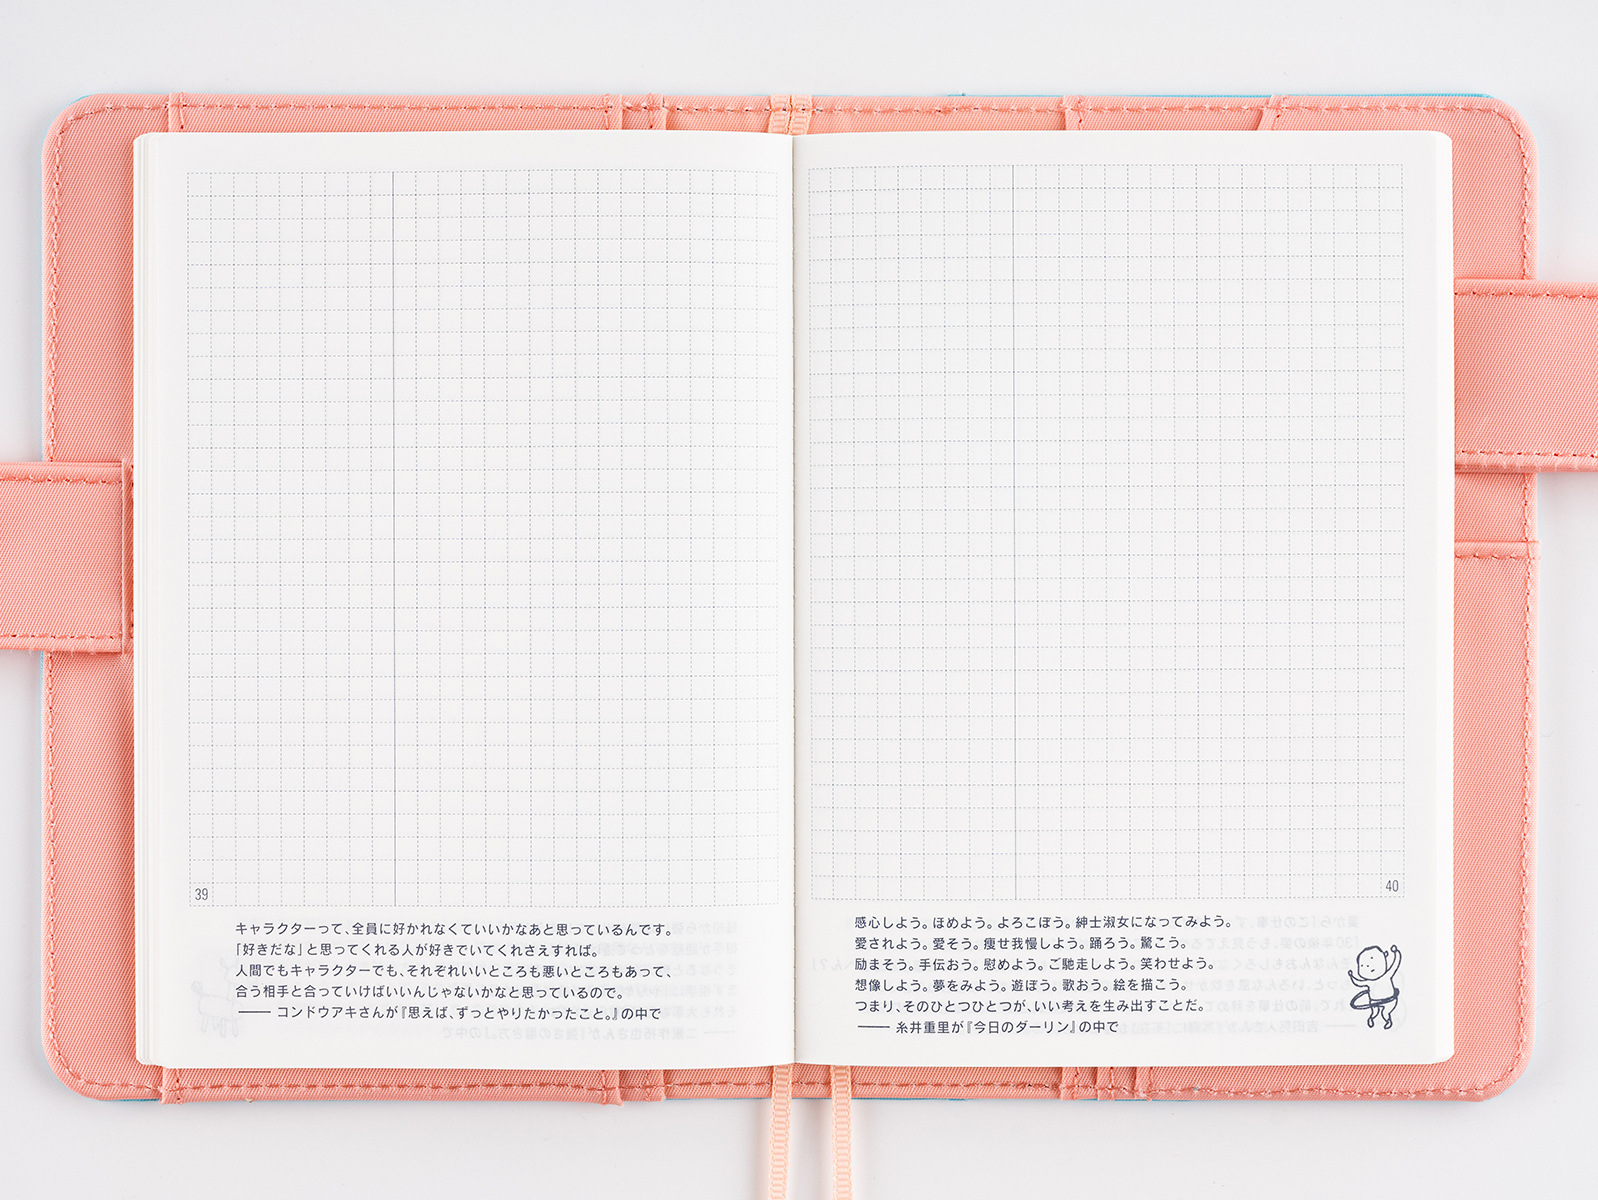 39
キャラクターって、全員に好かれなくていいかなあと思っているんです。
「好きだな」と思ってくれる人が好きでいてくれさえすれば。
人間でもキャラクターでも、それぞれいいところも悪いところもあって、
合う相手と合っていけばいいんじゃないかなと思っているので。
―― コンドウアキさんが『思えば、ずっとやりたかったこと。』の中で
40
感心しよう。ほめよう。よろこぼう。紳士淑女になってみよう。
愛されよう。愛そう。痩せ我慢しよう。踊ろう。驚こう。
励まそう。手伝おう。慰めよう。ご馳走しよう。笑わせよう。
想像しよう。夢をみよう。遊ぼう。歌おう。絵を描こう。
つまり、そのひとつひとつが、いい考えを生み出すことだ。
―― 糸井重里が『今日のダーリン』の中で